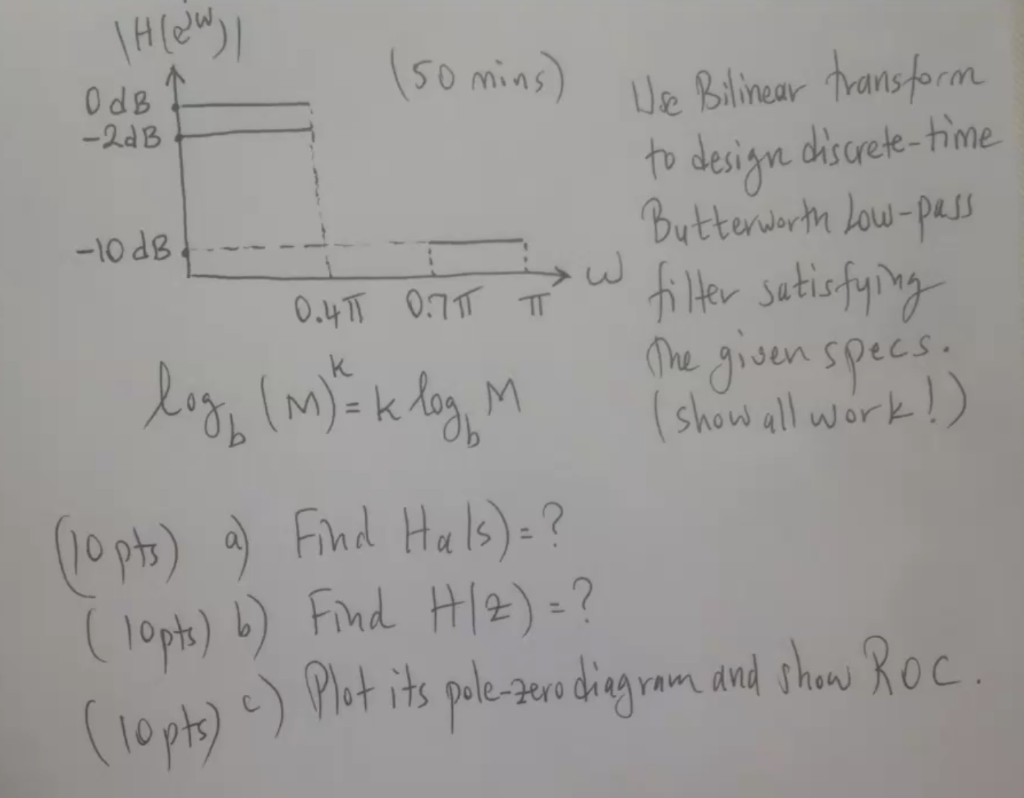 |H(e^jw)|
(50 mins)
0 dB
-2dB
-10 dB
0.4π 0.7π π
w
Use Bilinear transform
to design discrete-time
Butterworth Low-pass
filter satisfying
the given specs.
(show all work!)
log_b (M)^k = k log_b M
(10 pts) a) Find Ha(s) = ?
(10pts) b) Find H(z) = ?
(10 pts) c) Plot its pole-zero diagram and show ROC.